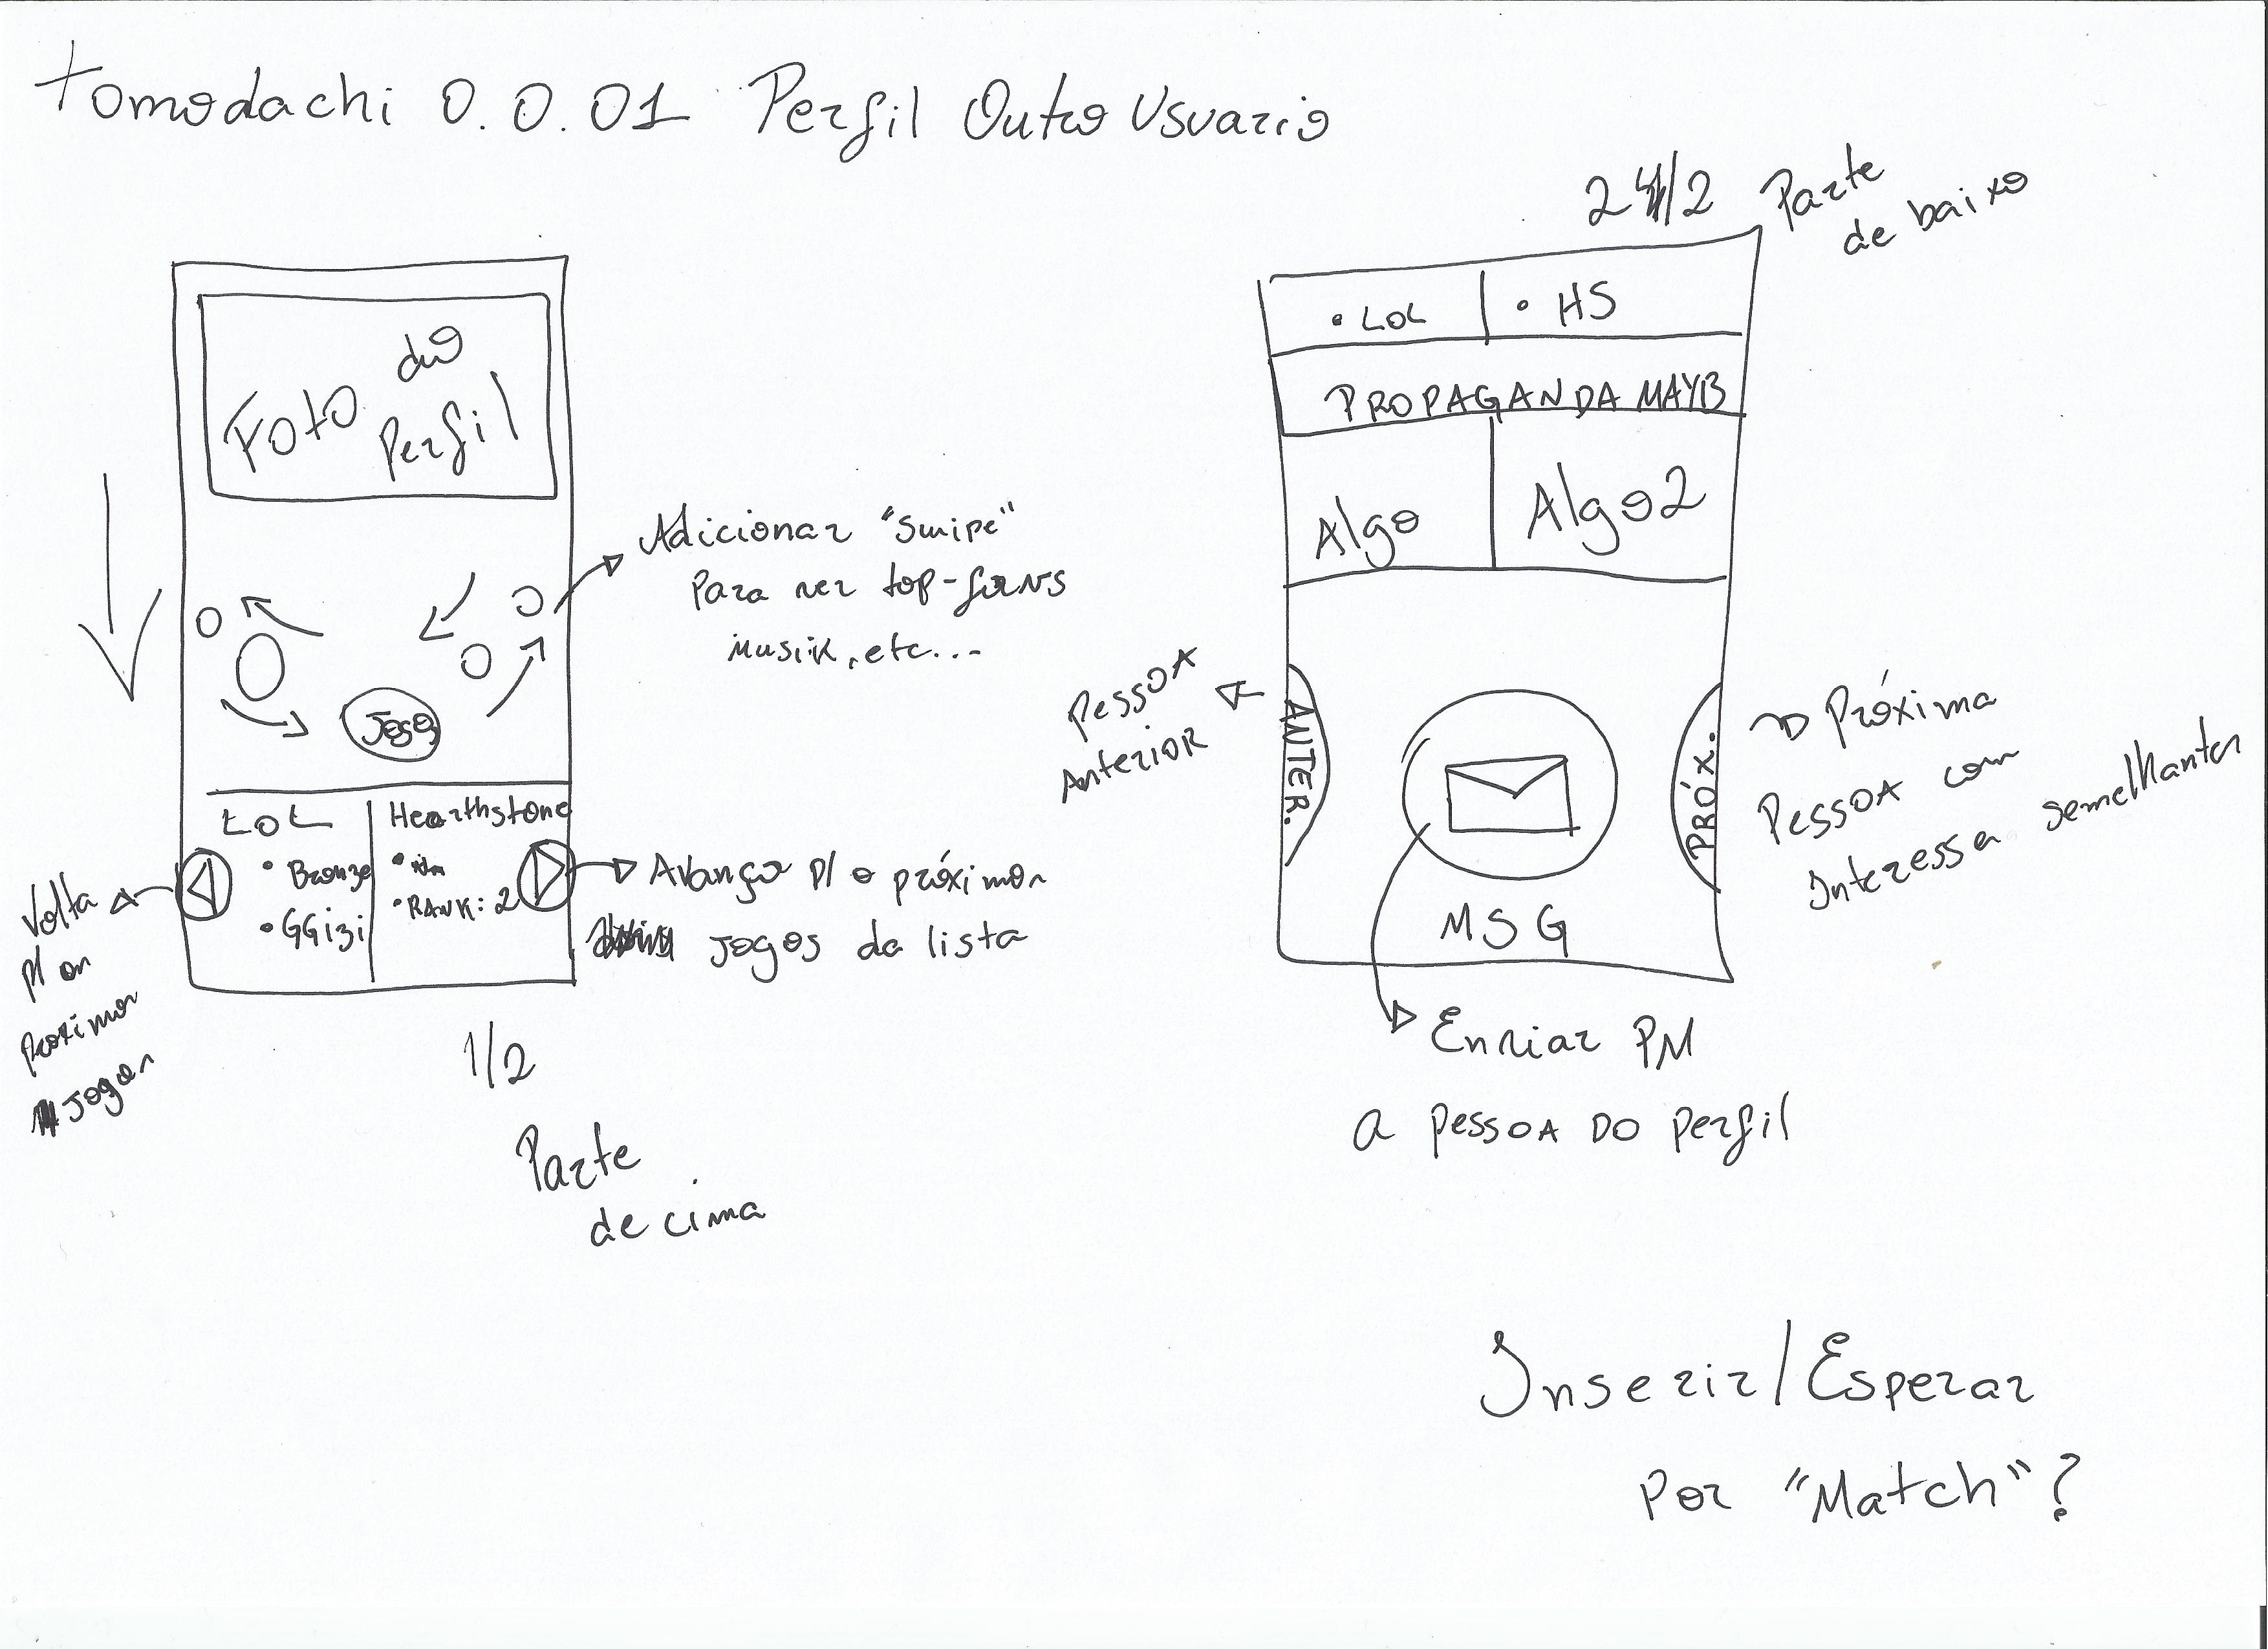 Tomodachi 0.0.01 Perfil Outro Usuario
Foto do
Perfil
Adicionar "swipe"
Para ver top-
Musik, etc...
Jogo
LOL
Bronze
GGizi
Hearthstone
RANK: 2
Volta
p/ os
Proximos
Jogos
Avanço p/ o próximos
Jogos da lista
1/2
Parte
de cima
2/2 Parte
de baixo
LOL
HS
PROPAGANDA MAYB
Algo
Algo2
Pessoa
Anterior
ANTER.
PRÓX.
MSG
Próxima
Pessoa com
Interesses semelhantes
Enviar PM
a pessoa do perfil
Inserir/Esperar
Por "Match"?